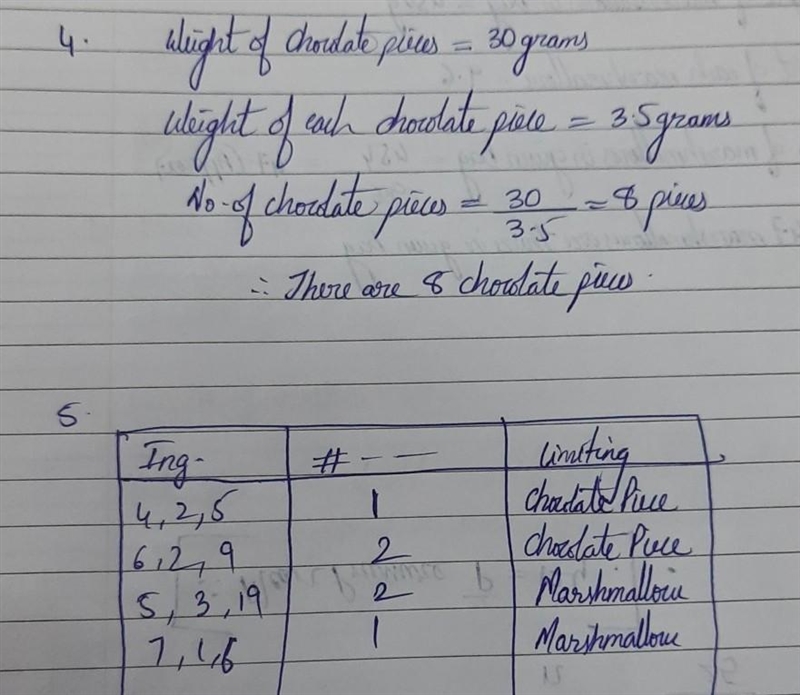 4. Weight of Chocolate pieces = 30 grams
Weight of each chocolate piece = 3.5 grams
No. of chocolate pieces = 30/3.5 = 8 pieces
∴ There are 8 chocolate pieces.
5.
Ing. # - — Limiting
4, 2, 5 1 Chocolate Piece
6, 2, 9 2 Chocolate Piece
5, 3, 19 2 Marshmallow
7, 1, 6 1 Marshmallow